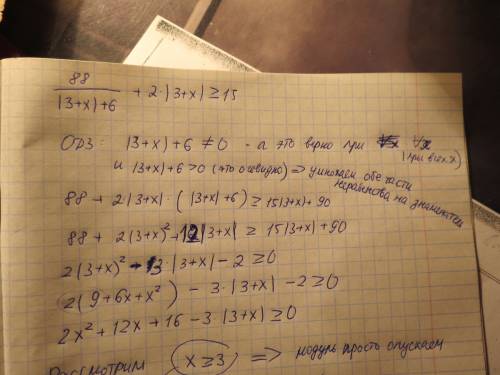 88
|3+x|+6 + 2·|3+x| ≥ 15
ОДЗ: |3+x|+6 ≠ 0 - а это верно при ∀x
(при всех x)
и |3+x|+6 > 0 (это очевидно) => умножаем обе части
неравенства на знаменатель
88 + 2|3+x|·(|3+x|+6) ≥ 15|3+x| + 90
88 + 2(3+x)² + 12|3+x| ≥ 15|3+x| + 90
2(3+x)² - 3·|3+x| - 2 ≥ 0
2(9+6x+x²) - 3·|3+x| - 2 ≥ 0
2x² + 12x + 16 - 3·|3+x| ≥ 0
Рассмотрим x ≥ 3 => модуль просто опускаем